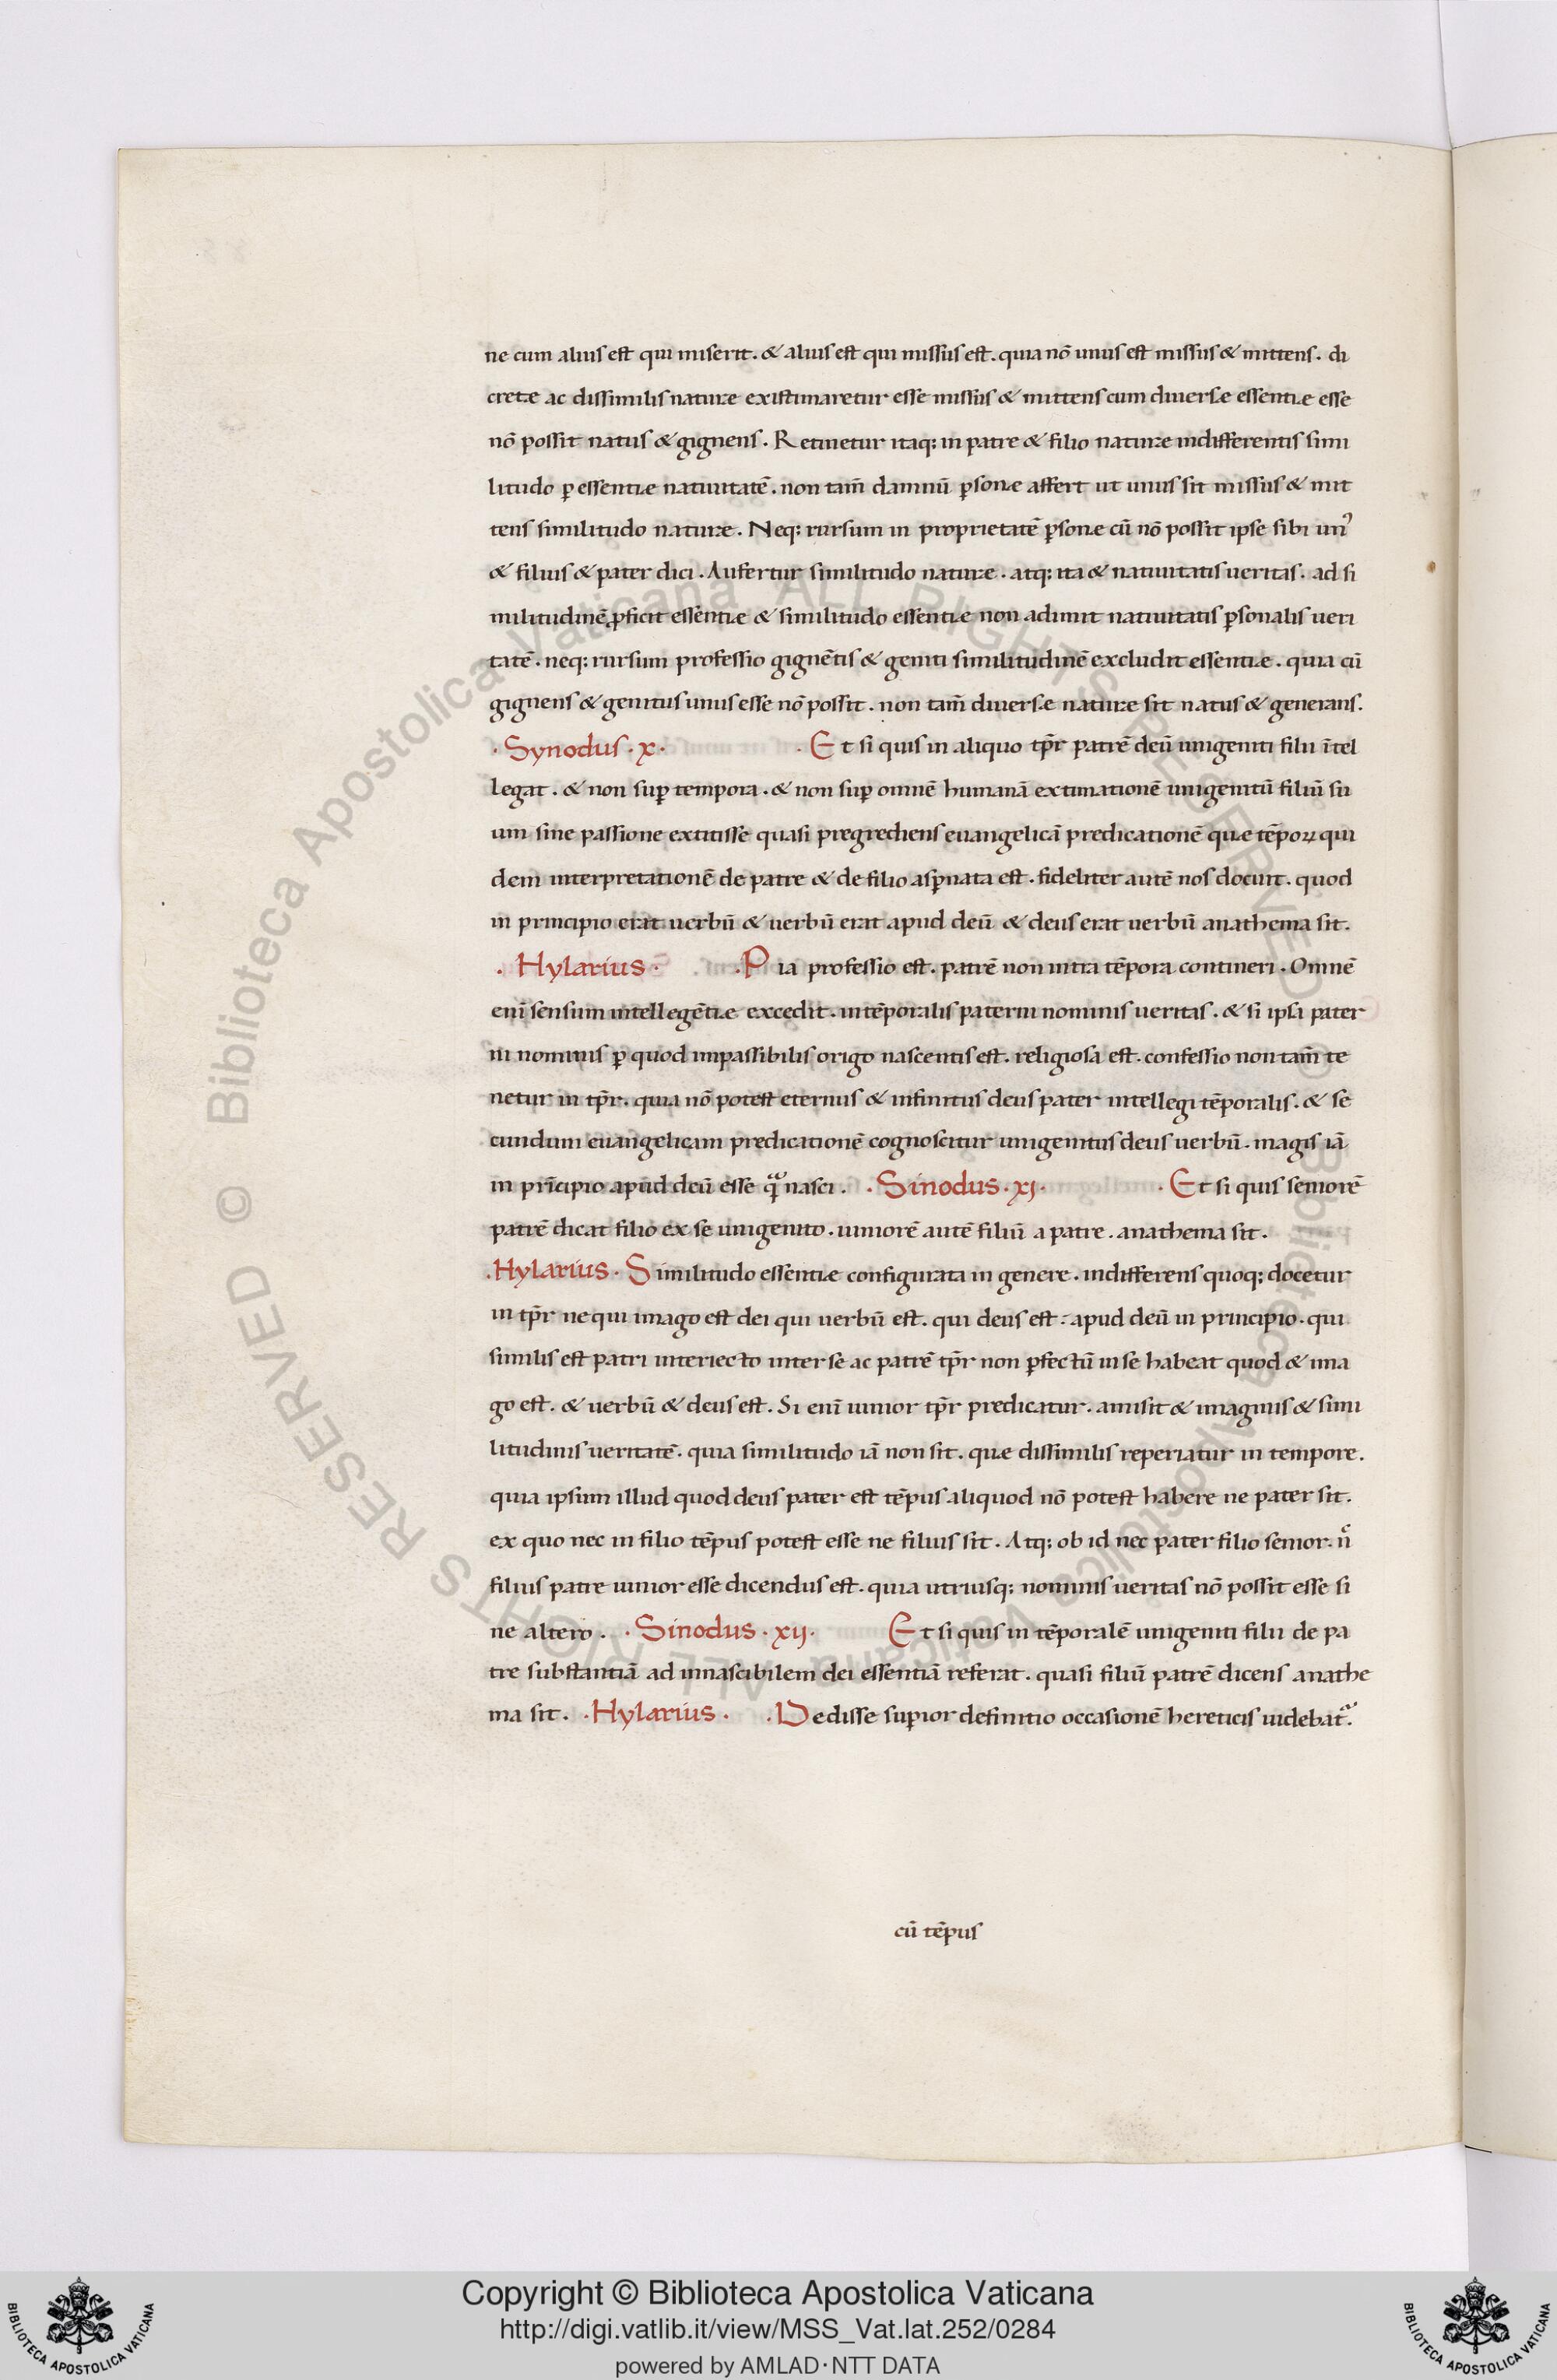 ne cum alius est qui miserit. & alius est qui missus est. quia nō unus est missus & mittens. di
cretæ ac dissimilis naturæ existimaretur esse missus & mittens cum diuersæ essentiæ esse
nō possit natus & gignens. Retinetur itaq; in patre & filio naturæ indifferentis simi
litudo ꝑ essentiæ natiuitatē. non tam̄ damnū ꝑsonæ affert ut unus sit missus & mit
tens similitudo naturæ. Neq; rursum in proprietatē ꝑsonæ cū nō possit ipse sibi un᾽
& filius & pater dici. Aufertur similitudo naturæ. atq; ita & natiuitatis ueritas. ad si
militudinē ꝓficit essentiæ & similitudo essentiæ non adimit natiuitatis ꝑsonalis ueri
tatē. neq; rursum professio gignētis & geniti similitudinē excludit essentiæ. quia cū
gignens & genitus unus esse nō possit. non tam̄ diuersæ naturæ sit natus & generans.
· Synodus · x · · Et si quis in aliquo tp̄r patrē deū unigeniti filii ītel
legat. & non suꝑ tempora. & non suꝑ omnē humanā extimationē unigenitū filiū su
um sine passione extitisse quasi pregrediens euangelicā predicationē quæ tēpoꝝ qui
dem interpretationē de patre & de filio asꝑnata est. fideliter autē nos docuit. quod
in principio erat uerbū & uerbū erat apud deū & deus erat uerbū anathema sit.
· Hylarius · · Pia professio est. patrē non intra tēpora contineri. Omnē
eni̅ sensum intellegētiæ excedit. intēporalis paterni nominis ueritas. & si ipsa pater
ni nominis ꝑ quod impassibilis origo nascentis est. religiosa est. confessio non tam̄ te
netur in tp̄r. quia nō potest eternus & infinitus deus pater intellegi tēporalis. & se
cundum euangelicam predicationē cognoscitur unigenitus deus uerbū. magis iā
in prīcipio apud deū esse qᷓ nasci. · Sinodus · xj · · Et si quis seniorē
patrē dicat filio ex se unigenito. iuniorē autē filiū a patre. anathema sit.
· Hylarius · Similitudo essentiæ configurata in genere. indifferens quoq; docetur
in tp̄r ne qui imago est dei qui uerbū est. qui deus est. apud deū in principio. qui
similis est patri interiecto inter se ac patrē tp̄r non ꝑfectū in se habeat quod & ima
go est. & uerbū & deus est. Si enī iunior tp̄r predicatur. amisit & imaginis & simi
litudinis ueritatē. quia similitudo iā non sit. quæ dissimilis reperiatur in tempore.
quia ipsum illud quod deus pater est tēpus aliquod nō potest habere ne pater sit.
ex quo nec in filio tēpus potest esse ne filius sit. Atq; ob id nec pater filio senior. nͨ
filius patre iunior esse dicendus est. quia utriusq; nominis ueritas nō possit esse si
ne altero. · Sinodus · xij · Et si quis in tēporalē unigeniti filii de pa
tre substantiā ad innascibilem dei essentiā referat. quasi filiū patrē dicens anathe
ma sit. · Hylarius · · Dedisse suꝑior definitio occasionē hereticis uidebatᷣ.
cū tēpus
Copyright © Biblioteca Apostolica Vaticana
http://digi.vatlib.it/view/MSS_Vat.lat.252/0284
powered by AMLAD · NTT DATA
BIBLIOTECA APOSTOLICA VATICANA
BIBLIOTECA APOSTOLICA VATICANA
© Biblioteca Apostolica Vaticana ALL RIGHTS RESERVED © Biblioteca Apostolica Vaticana ALL RIGHTS RESERVED